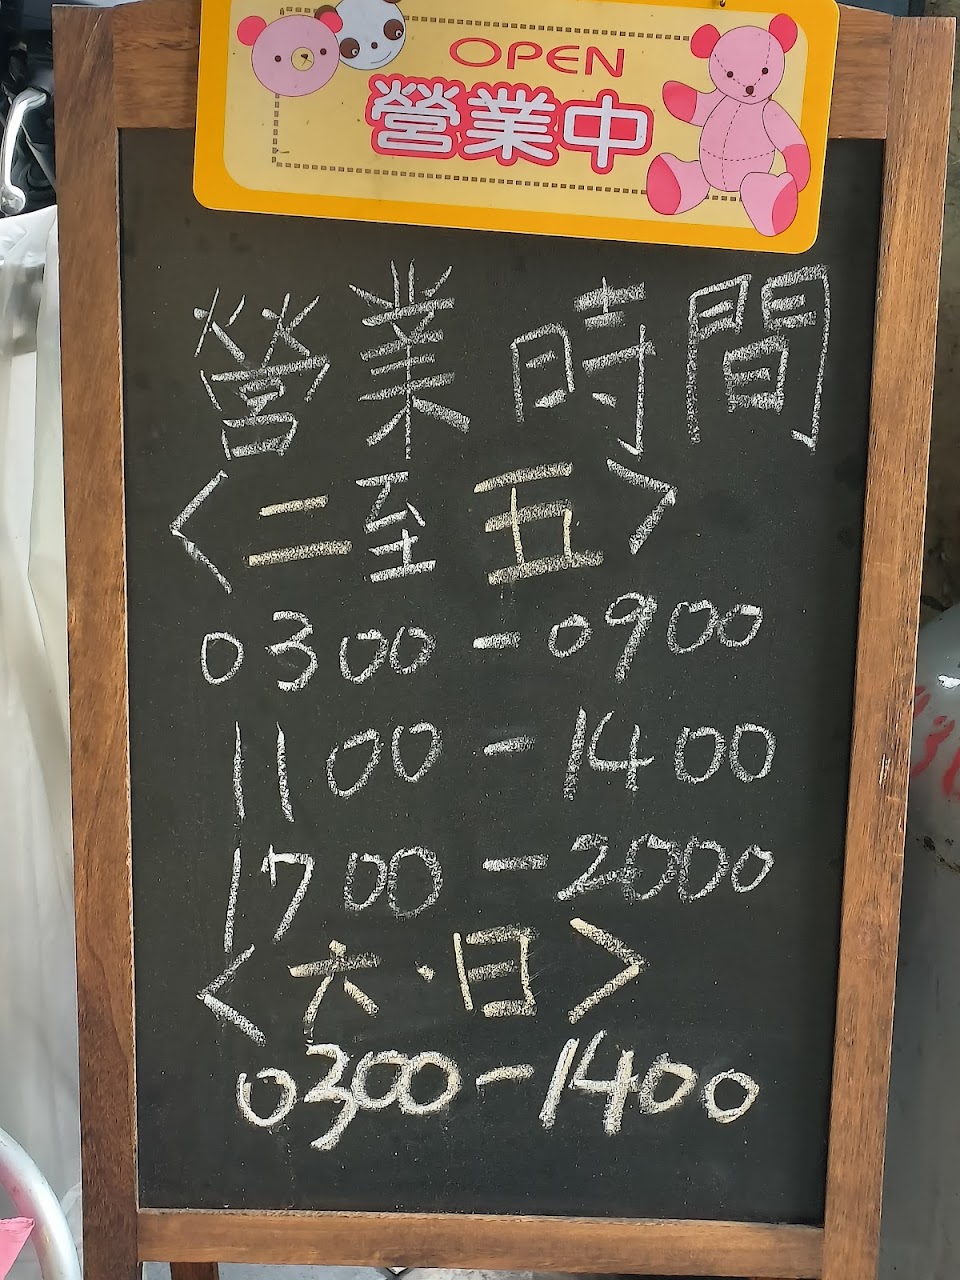 OPEN
營業中
營業時間
<二至五>
0300-0900
1100-1400
1700-2000
<六·日>
0300-1400